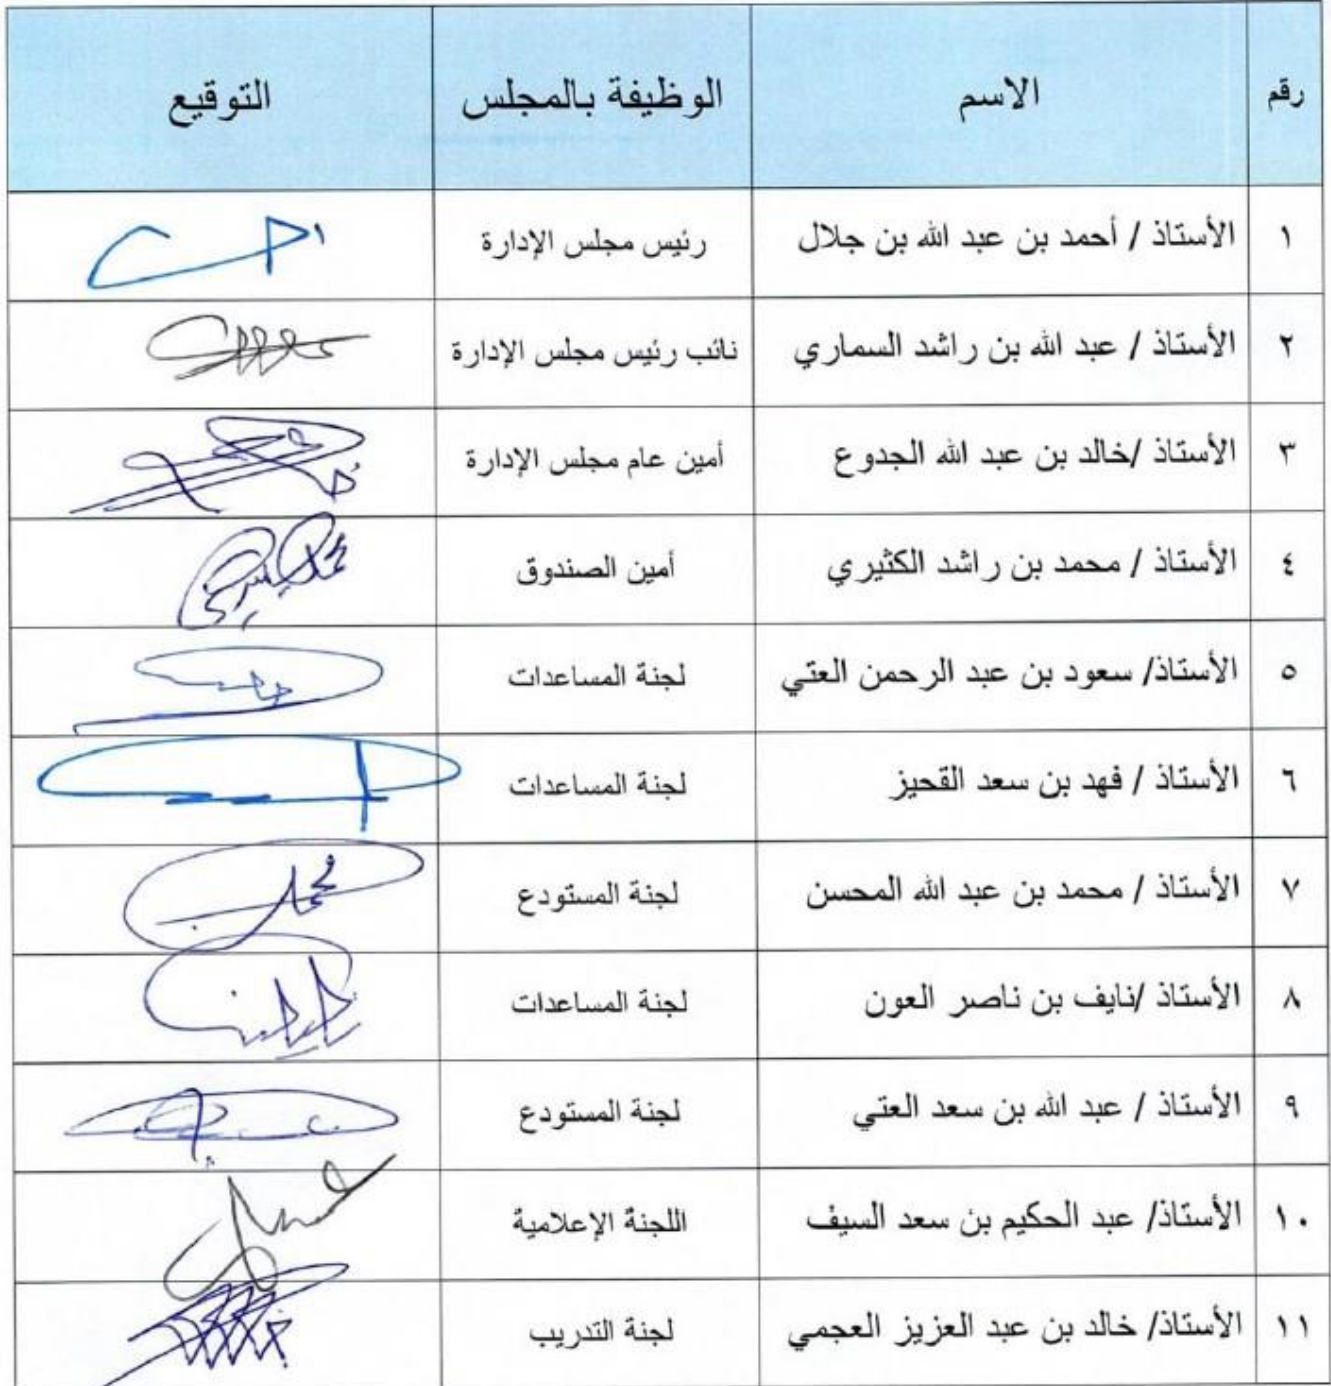 رقم الاسم الوظيفة بالمجلس التوقيع
١ الأستاذ / أحمد بن عبد الله بن جلال رئيس مجلس الإدارة
٢ الأستاذ / عبد الله بن راشد السماري نائب رئيس مجلس الإدارة
٣ الأستاذ /خالد بن عبد الله الجدوع أمين عام مجلس الإدارة
٤ الأستاذ / محمد بن راشد الكثيري أمين الصندوق
٥ الأستاذ/ سعود بن عبد الرحمن العتي لجنة المساعدات
٦ الأستاذ / فهد بن سعد القحيز لجنة المساعدات
٧ الأستاذ / محمد بن عبد الله المحسن لجنة المستودع
٨ الأستاذ /نايف بن ناصر العون لجنة المساعدات
٩ الأستاذ / عبد الله بن سعد العتي لجنة المستودع
١٠ الأستاذ/ عبد الحكيم بن سعد السيف اللجنة الإعلامية
١١ الأستاذ/ خالد بن عبد العزيز العجمي لجنة التدريب